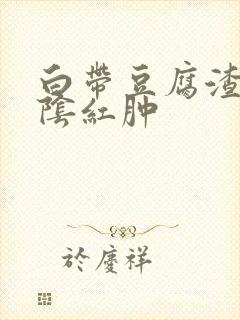 白帶豆腐渣
陰紅肿
於慶祥